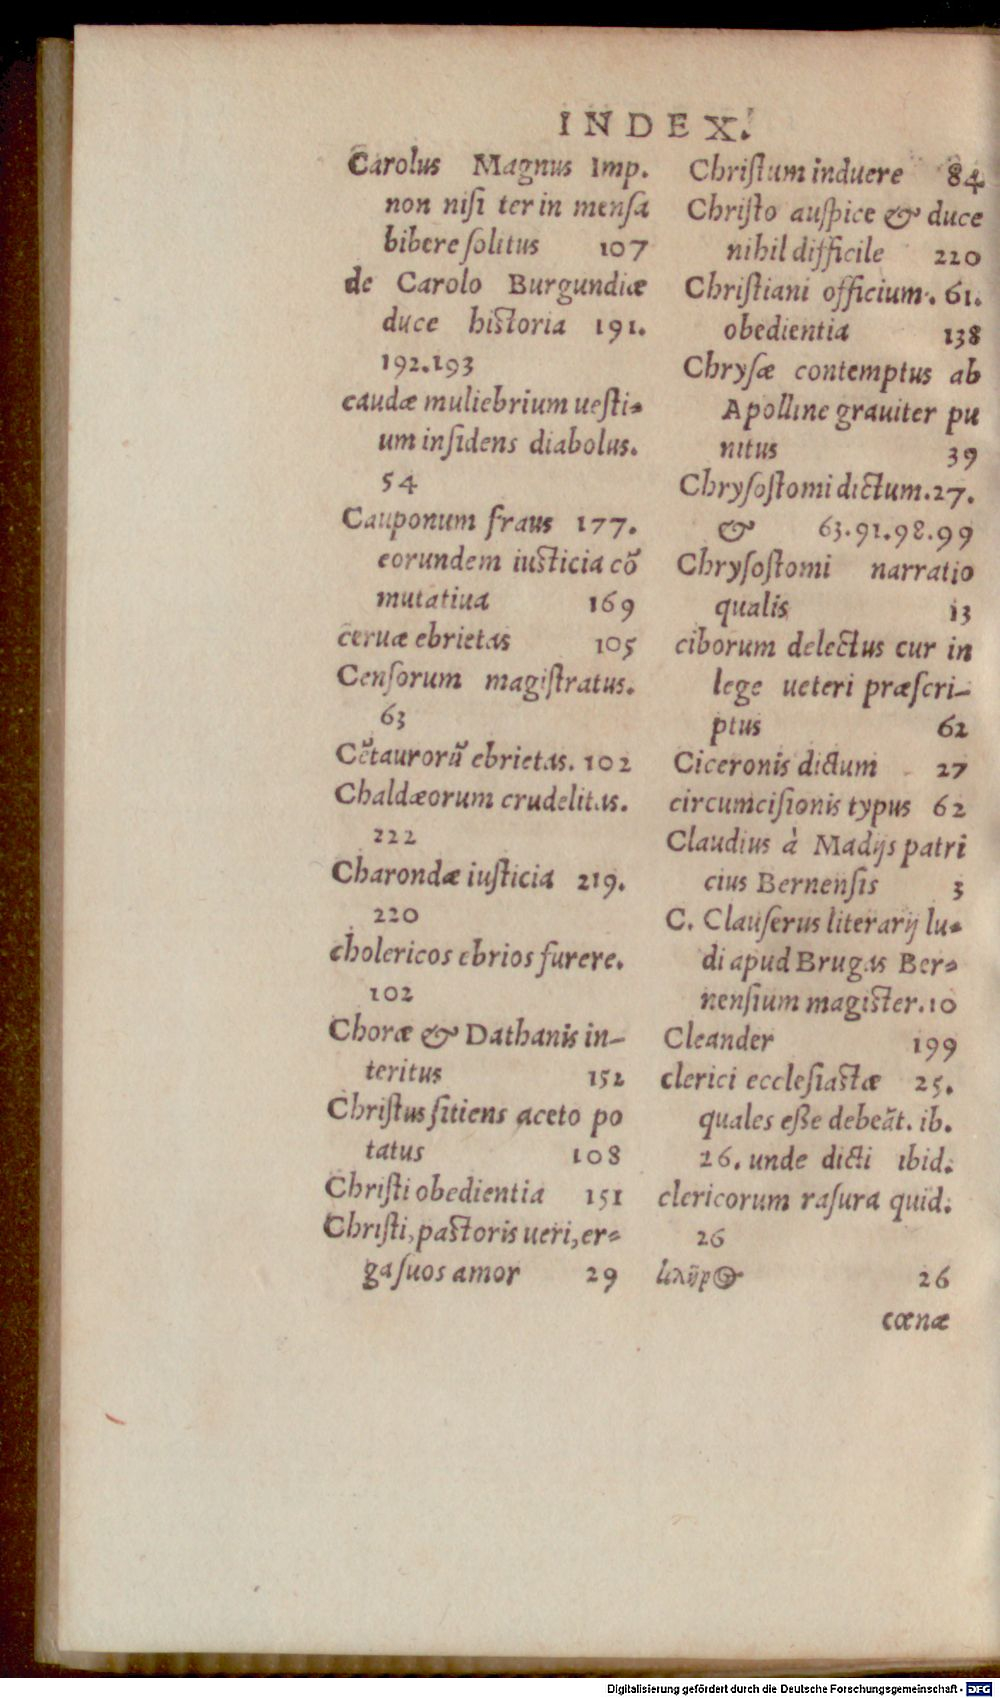 INDEX.
Carolus Magnus Imp.
non nisi ter in mensa
bibere solitus 107
de Carolo Burgundiæ
duce historia 191.
192.193
caudæ muliebrium uesti⸗
um insidens diabolus.
54
Cauponum fraus 177.
eorundem iusticia cõ
mutatiua 169
ceruæ ebrietas 105
Censorum magistratus.
63
Cẽtaurorũ ebrietas. 102
Chaldæorum crudelitas.
222
Charondæ iusticia 219.
220
cholericos ebrios furere.
102
Choræ & Dathanis in-
teritus 152
Christus sitiens aceto po
tatus 108
Christi obedientia 151
Christi, pastoris ueri, er⸗
ga suos amor 29
Christum induere 84
Christo auspice & duce
nihil difficile 220
Christiani officium. 61.
obedientia 138
Chrysæ contemptus ab
Apolline grauiter pu
nitus 39
Chrysostomi dictum.27.
& 63.91.98.99
Chrysostomi narratio
qualis 13
ciborum delectus cur in
lege ueteri præscri-
ptus 62
Ciceronis dictum 27
circumcisionis typus 62
Claudius à Madijs patri
cius Bernensis 3
C. Clauserus literarij lu⸗
di apud Brugas Ber⸗
nensium magister.10
Cleander 199
clerici ecclesiastæ 25.
quales eße debeãt. ib.
26. unde dicti ibid.
clericorum rasura quid.
26
κλῆρος 26
cœnæ
Digitalisierung gefördert durch die Deutsche Forschungsgemeinschaft - DFG